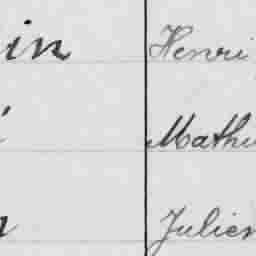 in Henri
Mathu
Julien